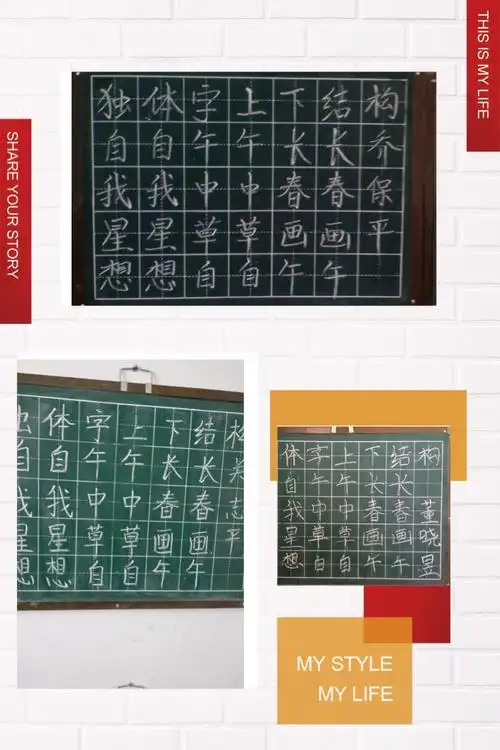 THIS IS MY LIFE
SHARE YOUR STORY
独体字上下结构
自自午午长长乔
我我中中春春保
星星草草画画平
想想自自午午
体字上下结构
自自午午长长
我我中中春春志
星星草草画画平
想想自自午午
体字上下结构
自午午长长
我中中春春董
星草草画画晓
想自自午午昱
MY STYLE
MY LIFE